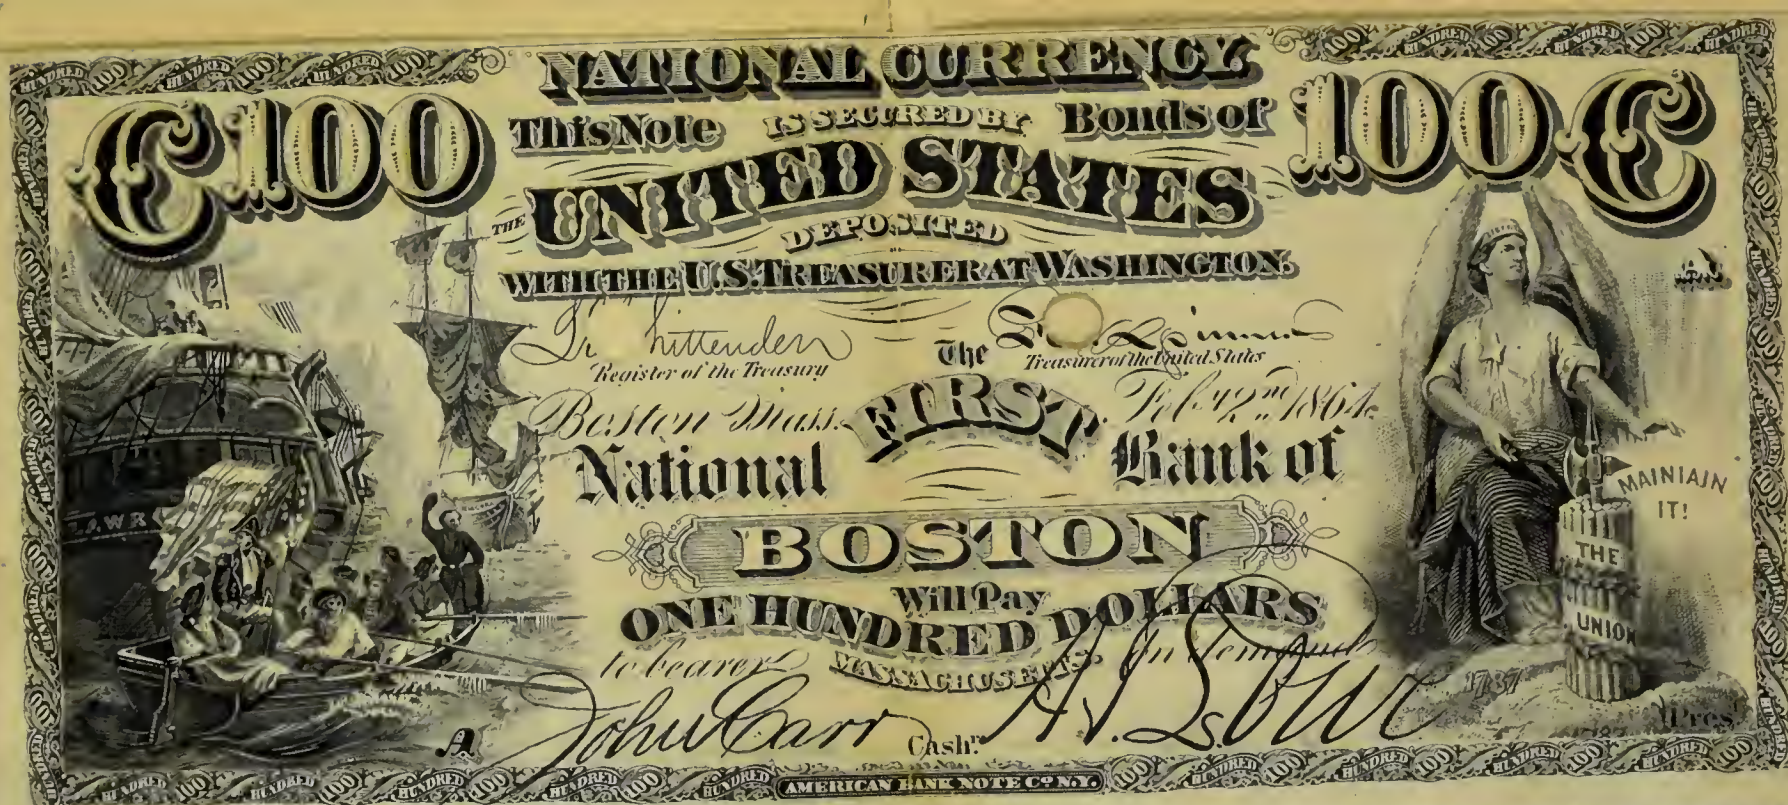 NATIONAL CURRENCY
C100
This Note IS SECURED BY Bonds of
100C
THE UNITED STATES
DEPOSITED
WITH THE U.S. TREASURER AT WASHINGTON.
hittenden
Register of the Treasury
The
Treasurer of the United States
Boston Mass. FIRST Feby. 2nd 1864.
National Bank of
BOSTON
Will Pay
ONE HUNDRED DOLLARS
to bearer on demand
MASSACHUSETTS.
John Carr Cashr.
Pres
A
LAWR
MAINTAIN
IT!
THE
UNION
1787
AMERICAN BANK NOTE Co. N.Y.
HUNDRED 100